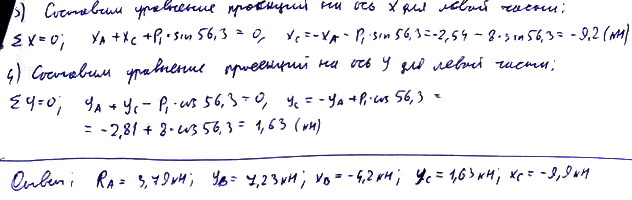 3) Составим уравнение проекций на ось X для левой части:
ΣX=0; XA+XC+P1·sin56,3=0, XC=-XA-P1·sin56,3=-2,54-8·sin56,3=-9,2(кН)
4) Составим уравнение проекций на ось Y для левой части:
ΣY=0; YA+YC-P1·cos56,3=0, YC=-YA+P1·cos56,3=
=-2,81+8·cos56,3=1,63(кН)
Ответ: RA=3,79кН; YB=7,23кН; XB=-4,2кН; YC=1,63кН; XC=-9,9кН